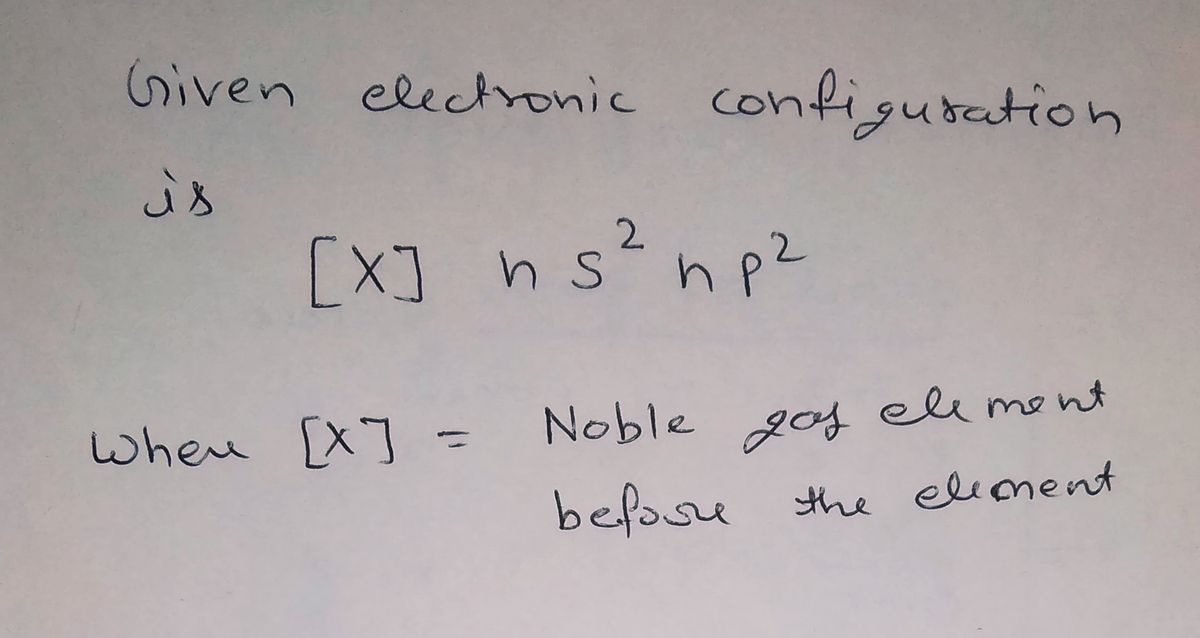 Given electronic configuration
is
[X] ns² np²
where [X] = Noble gas element
before the element